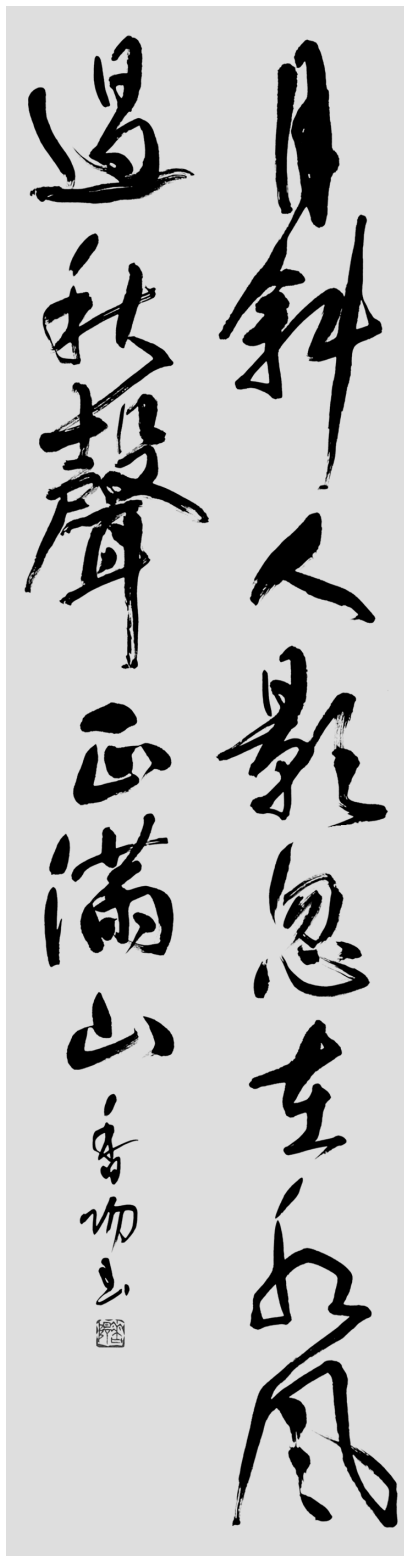 月斜人影忽在水風
過秋聲正滿山
香書